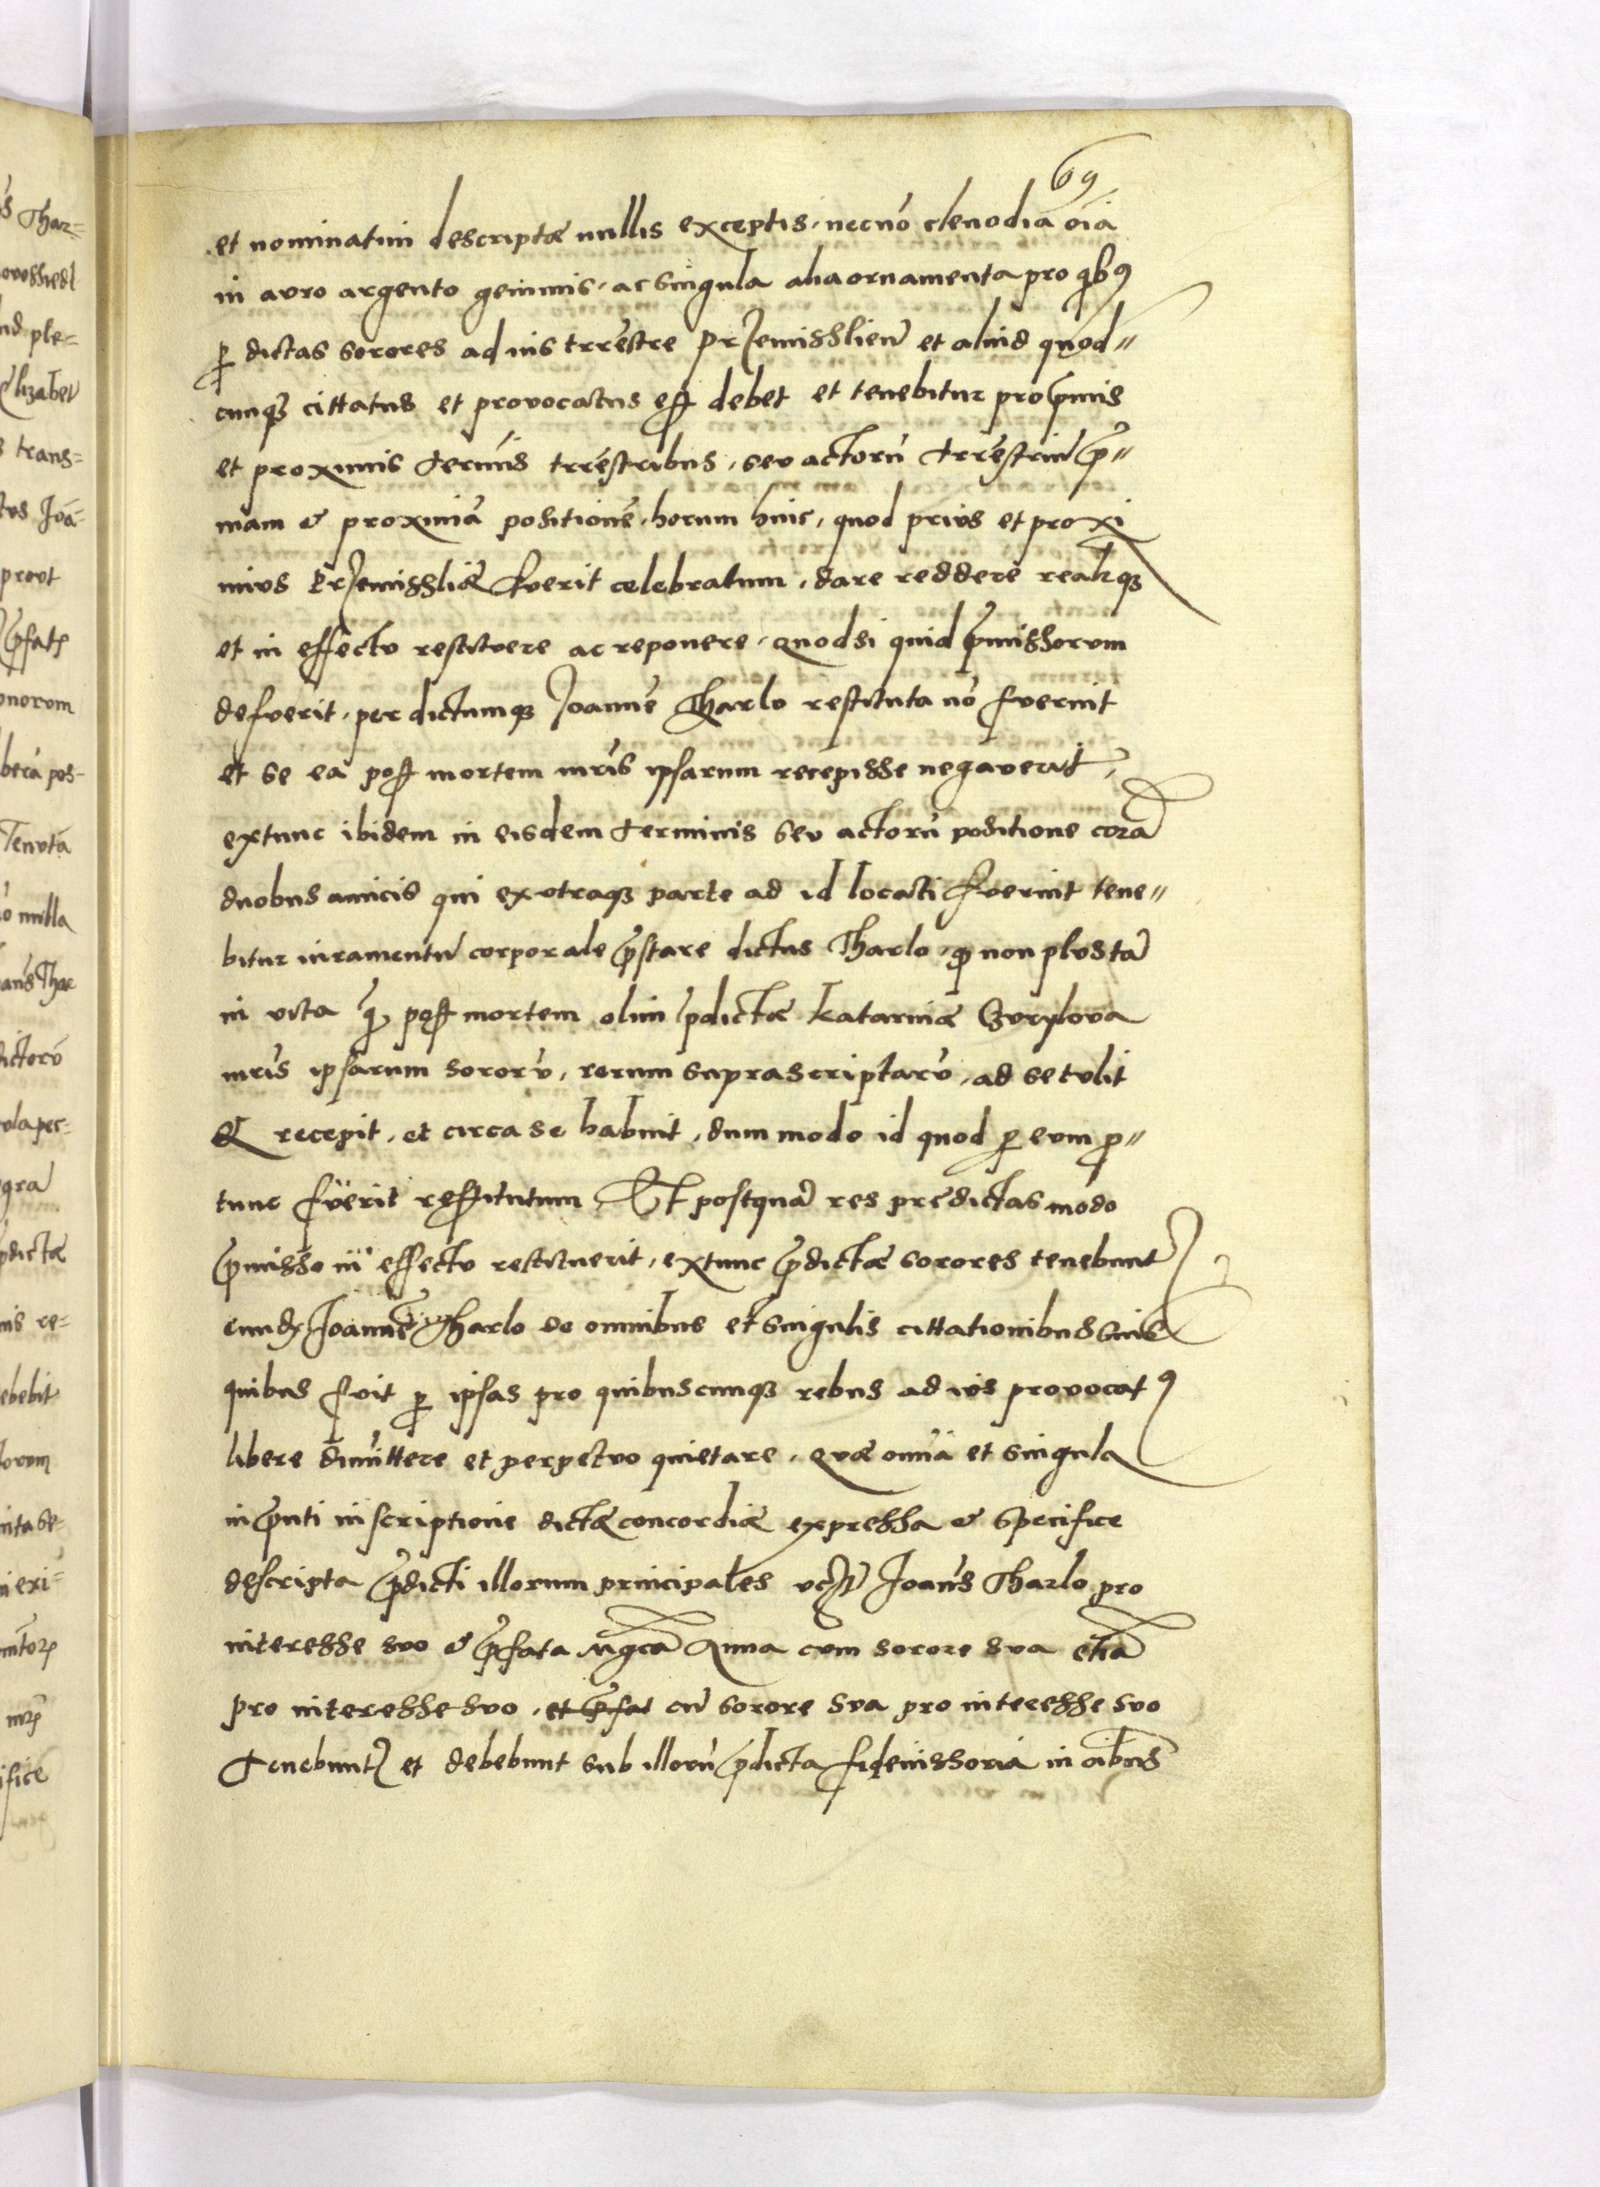 69
et nominatim descriptæ nullis exceptis, necnō clenodia oīa
in auro argento gemmis, ac singula alia ornamenta pro qb9
p dictas sorores ad ius trrēstre Przemissliēn et aliud quod〃
cunq3 cittatus et provocatus est debet et tenebitur pro p̄mis
et proximis termīs trrēstribus, seu actorū trrēstriū p̄〃
mam & proximā positionē, horum huic, quod prius et proxi
mius Przemissliæ fuerit celebratum, dare reddere realiq3
et in effectu restituere ac reponere, quodsi quid p̄missorum
defuerit, per dictumq3 Joannē Tharlo restituta nō fuerint
et se ea post mortem mr̄is ipsarum recepisse negaverit,
extunc ibidem in eisdem terminis seu actorū positione corā
duobus amicis qui ex utraq3 parte ad id locati fuerint tene〃
bitur iuramentū corporale p̄stare dictus Tharlo, q non plus tā
in vita q̄, post mortem olim p̄dictæ Katarinæ
mr̄is ipsarum sororū, rerum suprascriptarū, ad se tulit
& recepit, et circa se habuit, dummodo id quod p eum p〃
tunc fuerit restitutum, Et postquā res predictas modo
p̄misso in effectu restituerit, extunc p̄dictæ sorores tenebunt
eund Joannē Tharlo de omnibus et singulis cittationibus suis
quibus fuit p ipsas pro quibuscunq3 rebus ad ius provocat9
libere dimittere et perpetuo quietare, quæ omīa et singula
in p̄nti inscriptione dictæ concordiæ expressa & specifice
descripta p̄dicti illorum principales Joanēs Tharlo pro
interesse suo & p̄fata Mgcā Anna cum sorore sua etiā
pro interesse suo, et p̄fat cū sorore sua pro interesse suo
Tenebunt et debebunt sub illorū p̄dicta fideiussoria in oībus